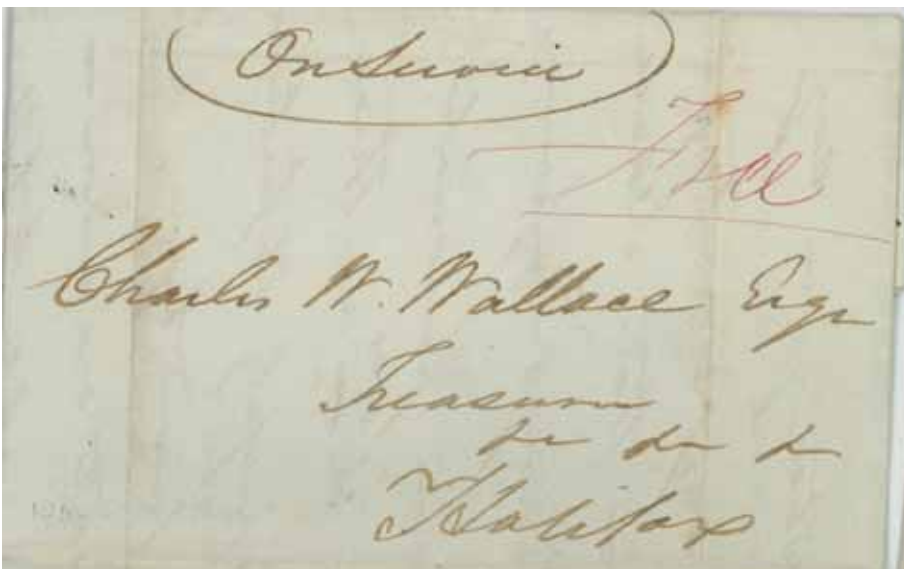 On Service
Free
Charles W. Wallace Esqr
Treasurer
Halifax